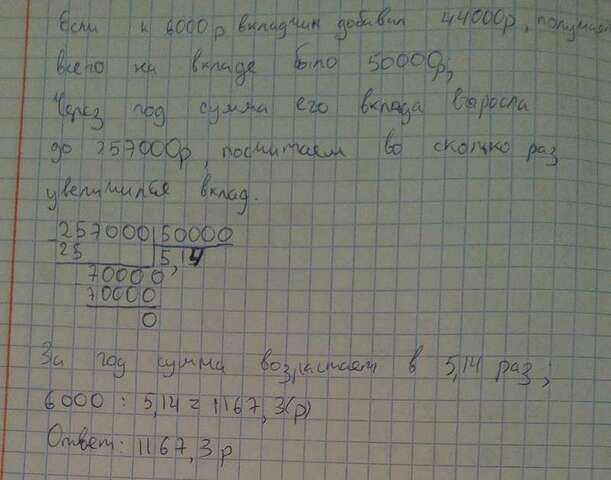 Если к 6000р вкладчик добавил 44000р, получаем
всего на вкладе было 50000р;
Через год сумма его вклада выросла
до 257000р, посчитаем во сколько раз
увеличился вклад.
257000 50000
25 5,14
70000
70000
0
За год сумма возрастает в 5,14 раз;
6000 : 5,14 = 1167,3(р)
Ответ: 1167,3р